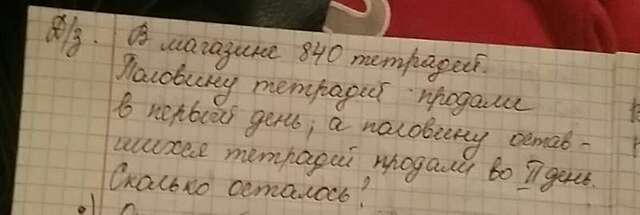 Д/з. В магазине 840 тетрадей.
Половину тетрадей продали
в первый день, а половину остав-
шихся тетрадей продали во II день.
Сколько осталось?